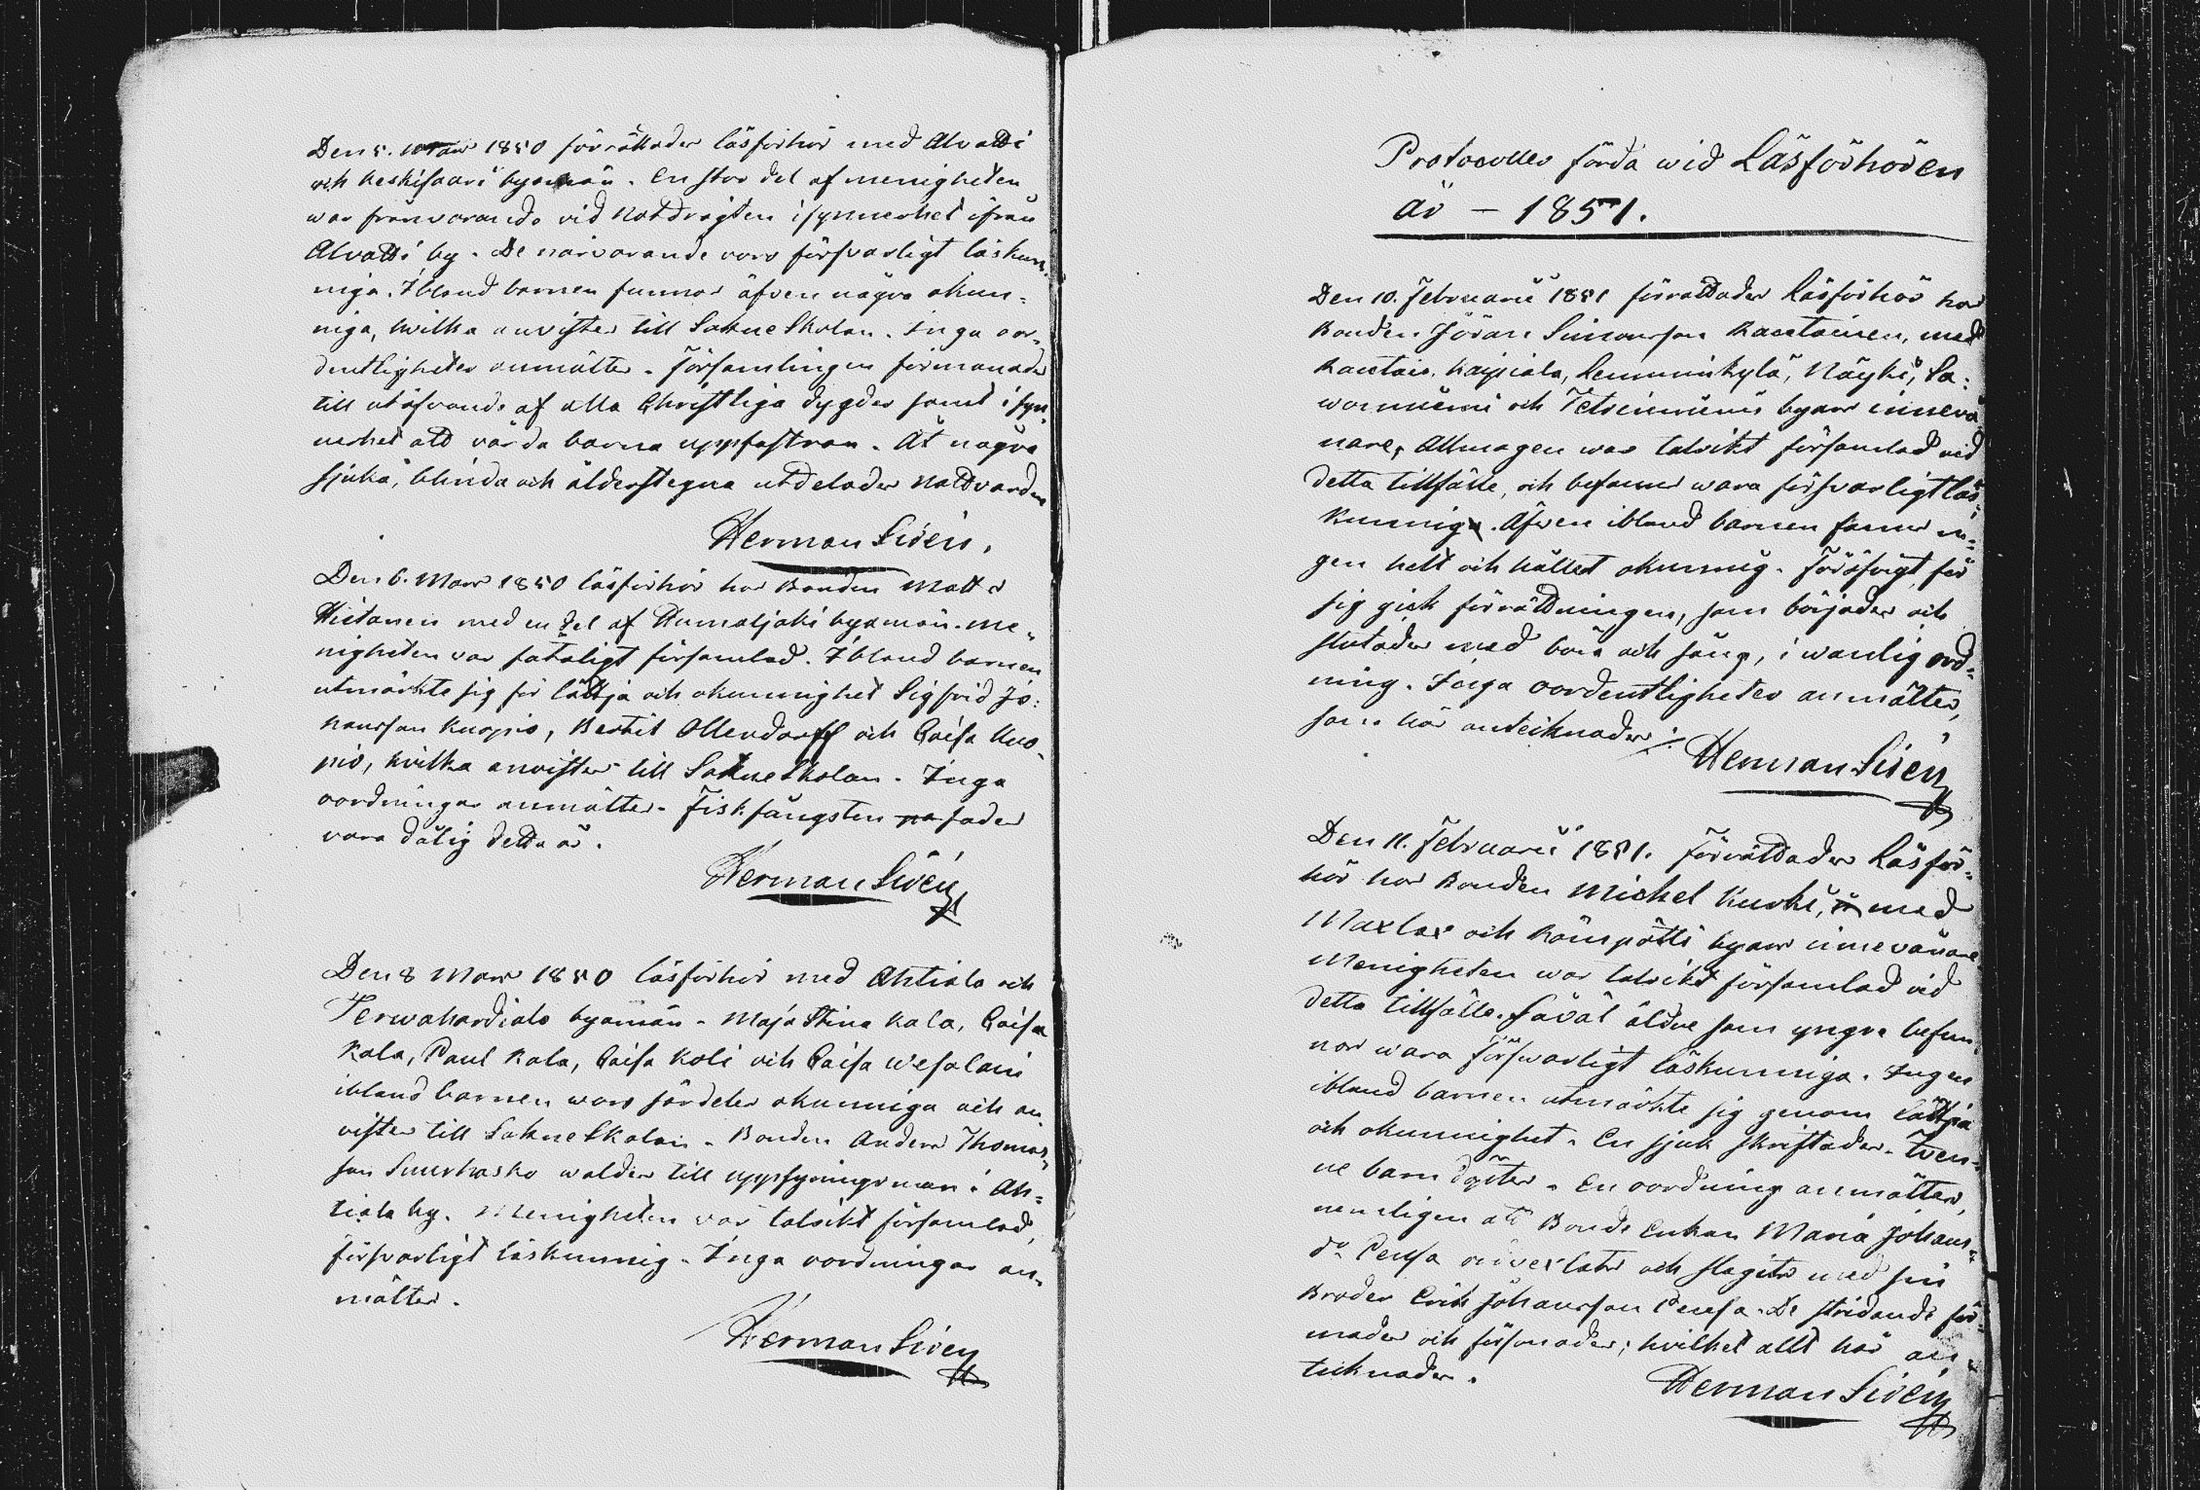 Den 5. Mars 1850 förrättades läsförhör med Alvatti
och Keskisaari byamän. En stor del af menigheten
war frånvarande vid notdrägten i synnerhet ifrån
Alvatti by. De närvarande voro försvarligt läskun-
niga. Ibland barnen funnos äfven några okun-
niga, hvilka anvistes till Sokne Skolan. Inga oor-
dentligheter anmältes. Församlingen förmanades
till utöfvande af alla Christliga dygder samt i syn-
nerhet att vårda barna uppfostran. Åt några
sjuka, blinda och ålderstegna utdelades nattvarden
Herman Sivén.
Den 6. Mars 1850 läsförhör hos Bonden Matts
Hietanen med en del af Humaljoki byamän. Me-
nigheten var fataligt församlad. Ibland barnen
utmärkte sig för lättja och okunnighet Sigfrid Jo-
hansson Kuopio, Bertil Ollendorff och Caisa Kuo-
pio, hvilka anvistes till Sokne Skolan. Inga
oordningar anmältes. Fiskfångsten sades
vara dålig detta år.
Herman Sivén
Den 8 Mars 1850 läsförhör med Ahtiala och
Terwahartiala byamän. Maja Stina Kala, Caisa
Kala, Paul Kala, Caisa Koli och Caisa Wesalain
ibland barnen woro särdeles okunniga och an
vistes till Sokne Skolan. Bonden Anders Thomas-
son Suurhasko waldes till uppsyningsman i Ah-
tiala by. Menigheten var talrikt församlad,
försvarligt läskunnig. Inga oordningar an-
mältes.
Herman Sivén
Protocoller förda wid Läsförhören
år – 1851.
Den 10. Februarii 1851 förrättades Läsförhör hos
Bonden Jöran Simonsson Kaentoinen, med
Kaentais, Kaijsiala, Lemminkylä, Näykki, Sa-
wonniemi och Tetriniemi byars inneva
nare, Allmogen war talrikt församlad vid
detta tillfälle, och befanns wara försvarligt läs-
kunnig. Äfven ibland barnen fanns in-
gen helt och hållet okunnig. Föröfrigt för
sig gick förrättningen, som börjades och
slutades med bön och sång, i wanlig ord-
ning. Inga oordentligheter anmältes,
som här anteknades
Herman Sivén
Den 11. Februarii 1851. förrättades Läsför-
hör hos Bonden Michel Kurki, med
Maxlax och Kämpötti byars innevånare
Menigheten war talrikt församlad vid
detta tillfälle. Såväl äldre som yngre befun-
nos wara försvarligt läskunniga. Ingen
ibland barnen utmärkte sig genom lättja
och okunnighet. En sjuk skriftades. Tven-
ne barn döptes. En oordning anmältes,
nemligen att Bonde Enkan Maria Johans-
dr Pensa oivexlats och slagits med sin
Broder Erik Johansson Pensa. De stridande för-
mades och försonades; hvilket allt här an-
tecknades.
Herman Sivén